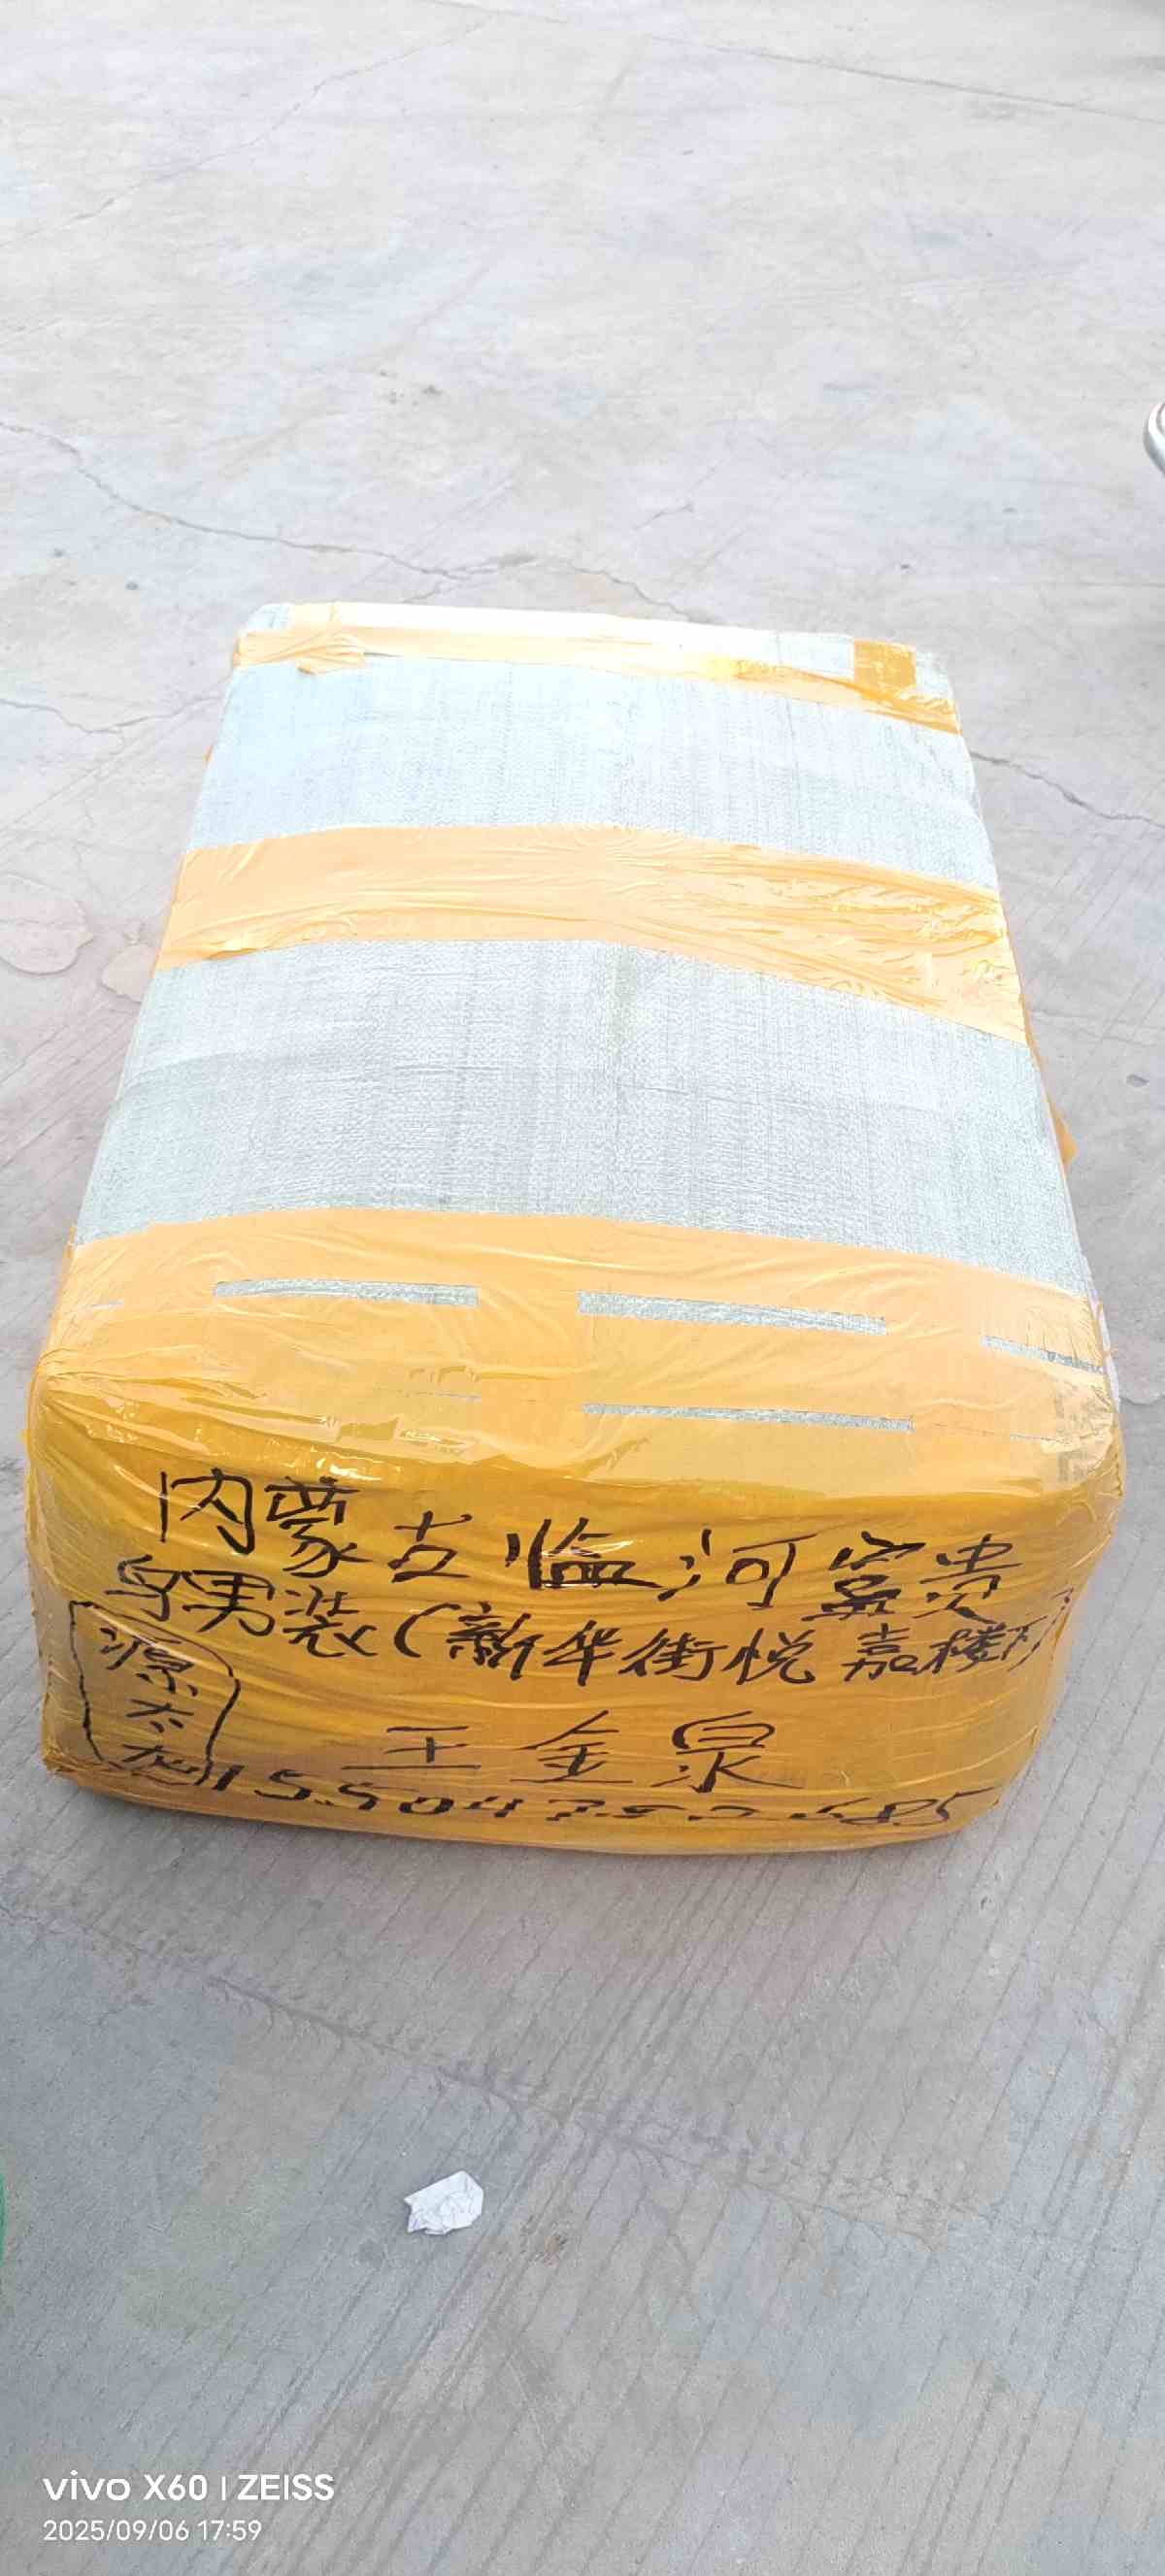 内蒙古临河富贵
鸟男装(新华街悦嘉楼下
源
大
大
王全泉
vivo X60 | ZEISS
2025/09/06 17:59